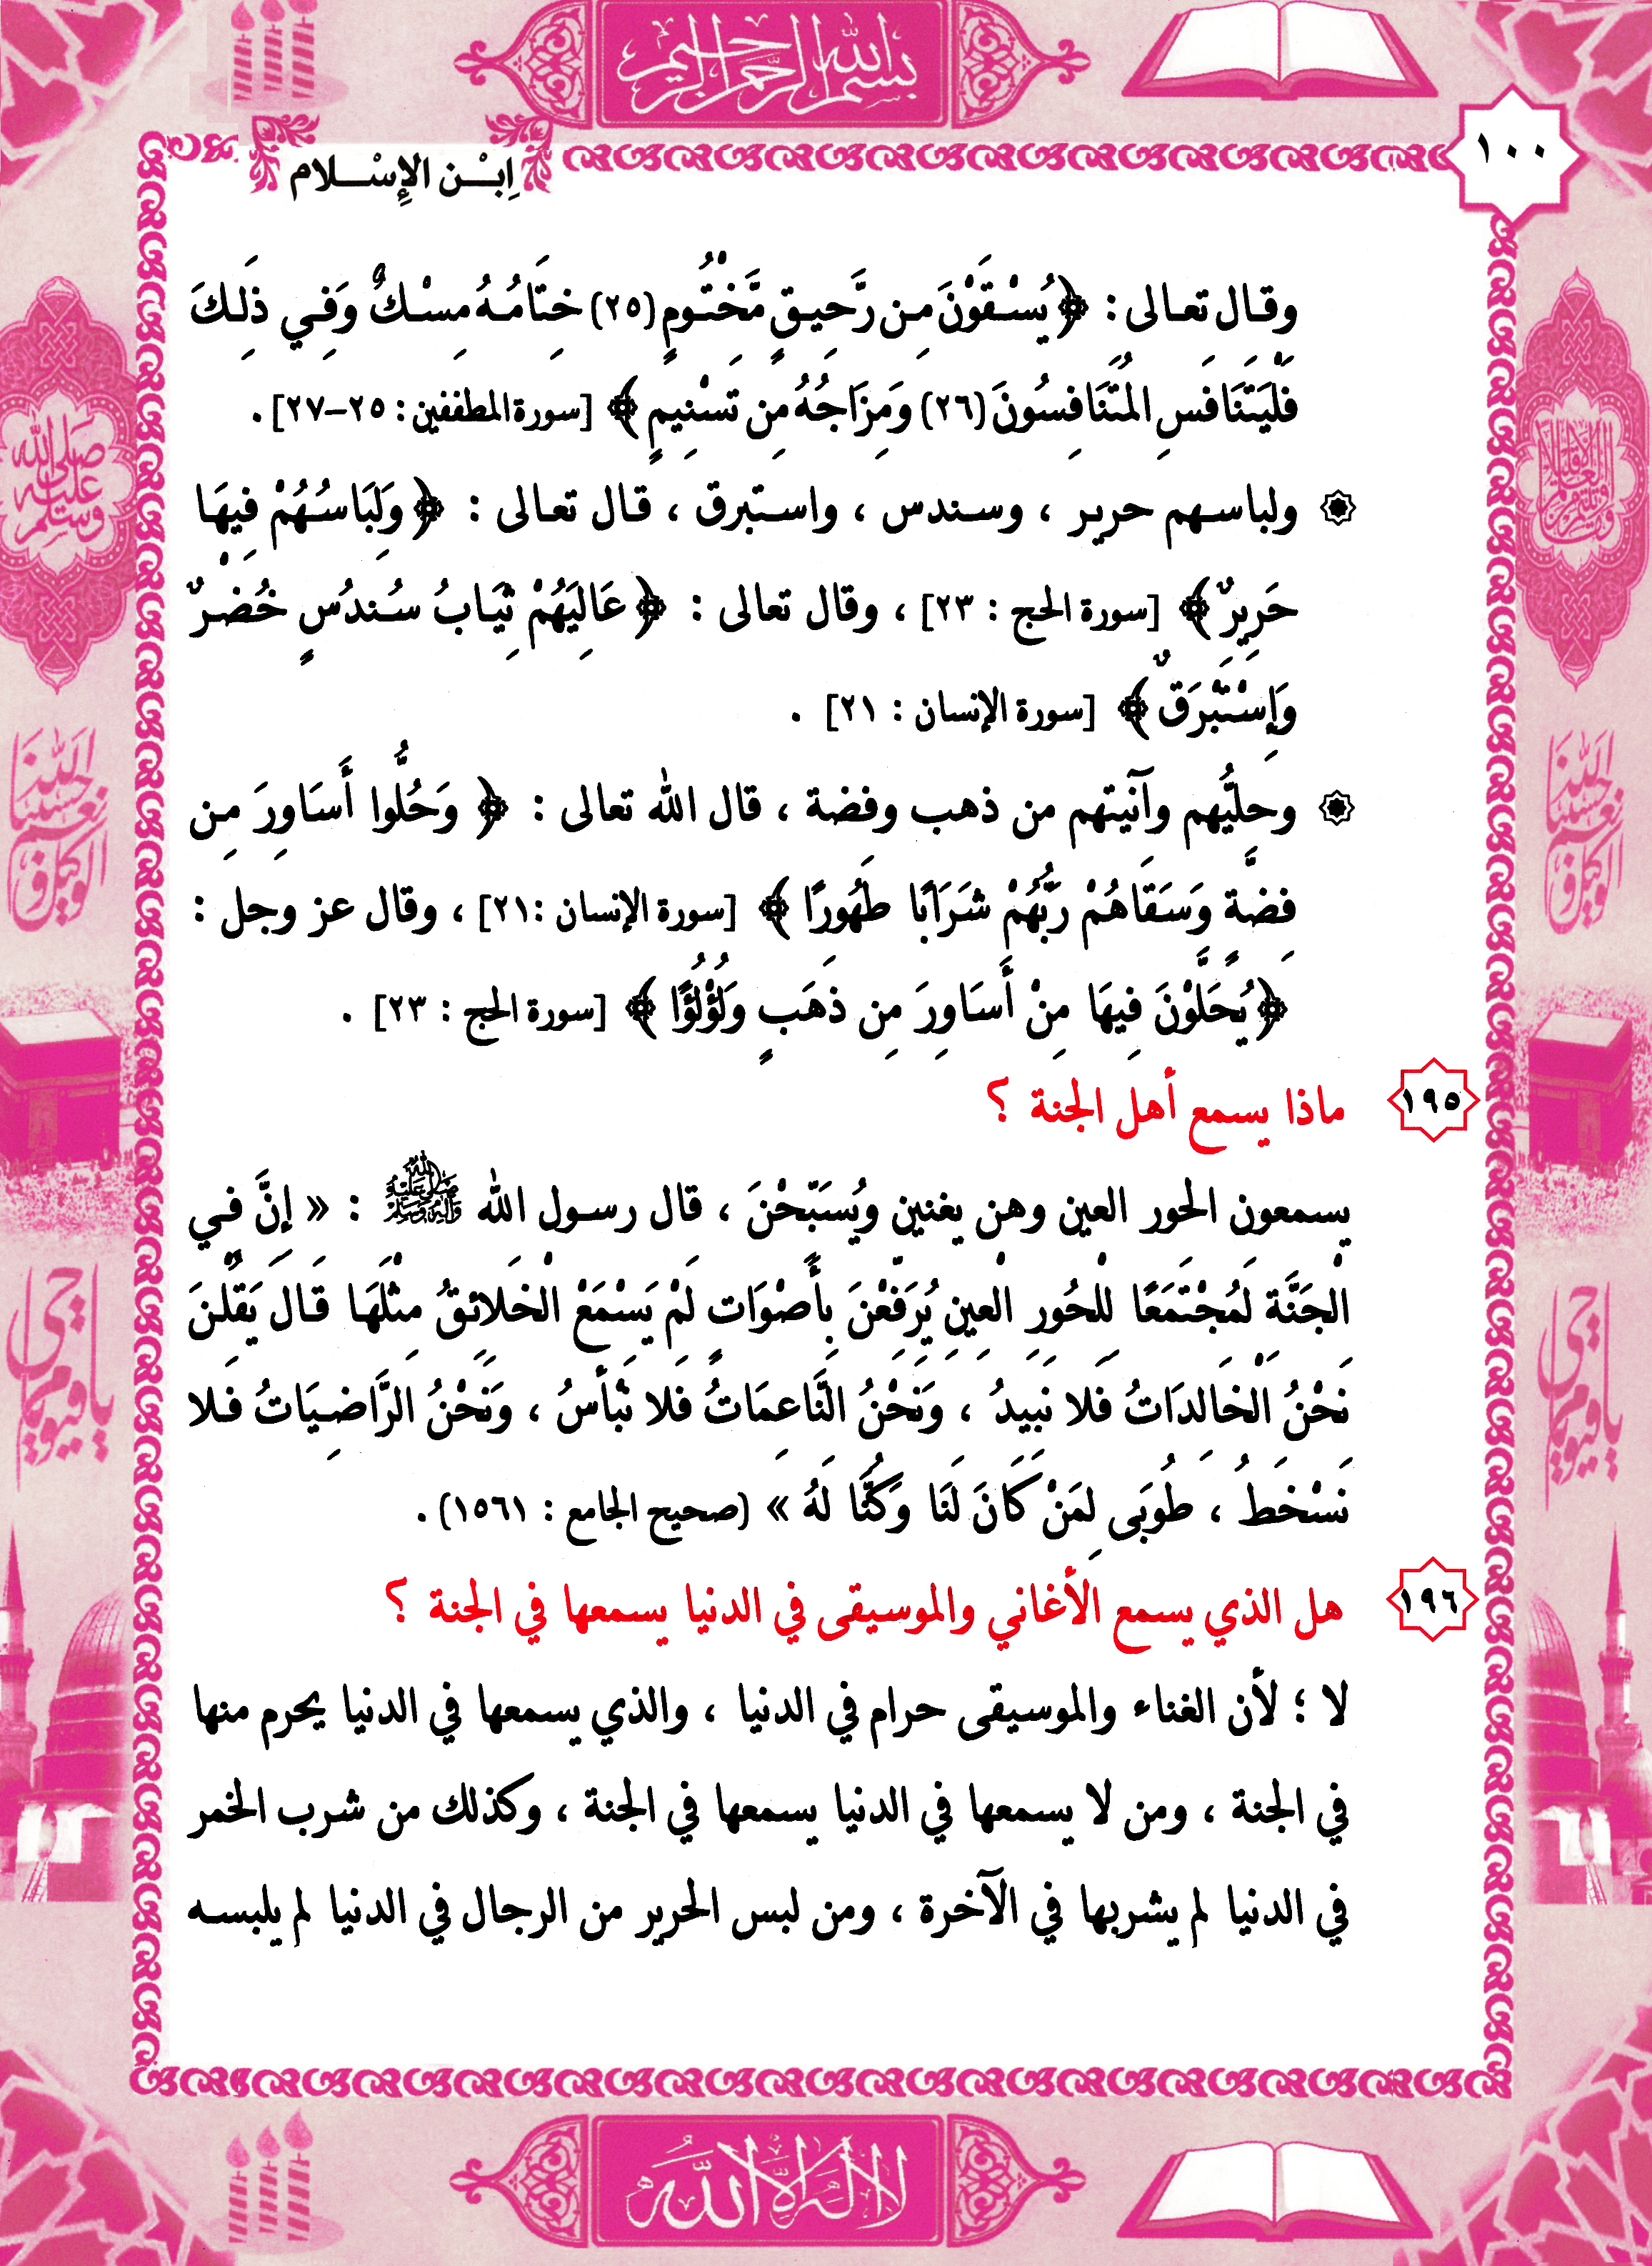 بسم الله الرحمن الرحيم
١٠٠
اِبْـن الإِسْـلام
وقـال تعـالى : ﴿ يُسْـقَوْنَ مِـن رَّحِيـقٍ مَّخْتُـومٍ (٢٥) خِتَامُـهُ مِسْـكٌ وَفِـي ذَلِـكَ
فَلْيَتَنَافَسِ الْمُتَنَافِسُونَ (٢٦) وَمِزَاجُهُ مِن تَسْنِيمٍ ﴾ [سورة المطففين : ٢٥–٢٧] .
ولباسـهم حرير ، وسـندس ، واسـتبرق ، قـال تعـالى : ﴿ وَلِبَاسُـهُمْ فِيهَـا
حَرِيرٌ ﴾ [سورة الحج : ٢٣] ، وقال تعالى : ﴿ عَالِيَهُمْ ثِيَـابُ سُـندُسٍ خُضْـرٌ
وَإِسْـتَبْرَقٌ ﴾ [سورة الإنسان : ٢١] .
وحليُّهم وآنيتهم من ذهب وفضة ، قال الله تعالى : ﴿ وَحُلُّوا أَسَاوِرَ مِـن
فِضَّةٍ وَسَقَاهُمْ رَبُّهُمْ شَرَابًا طَهُورًا ﴾ [سورة الإنسان :٢١] ، وقال عز وجل :
﴿ يُحَلَّوْنَ فِيهَا مِنْ أَسَاوِرَ مِن ذَهَبٍ وَلُؤْلُؤًا ﴾ [سورة الحج : ٢٣] .
١٩٥ ماذا يسمع أهل الجنة ؟
يسمعون الحور العين وهن يغنين ويُسَبِّحْنَ ، قال رسـول الله ﷺ : « إِنَّ فـي
الْجَنَّةِ لَمُجْتَمَعًا لِلْحُورِ الْعِينِ يُرَفِّعْنَ بِأَصْوَاتٍ لَمْ يَسْمَعْ الْخَلَائِقُ مِثْلَهَا قَـالَ يَقُلْـنَ
نَحْنُ الْخَالِدَاتُ فَلَا نَبِيدُ ، وَنَحْنُ النَّاعِمَاتُ فَلَا نَبْأَسُ ، وَنَحْنُ الرَّاضِـيَاتُ فَـلا
نَسْـخَطُ ، طُوبَى لِمَنْ كَانَ لَنَا وَكُنَّا لَهُ » (صحيح الجامع : ١٥٦١) .
١٩٦ هل الذي يسمع الأغاني والموسيقى في الدنيا يسمعها في الجنة ؟
لا ؛ لأن الغناء والموسيقى حرام في الدنيا ، والذي يسمعها في الدنيا يحرم منها
في الجنة ، ومن لا يسمعها في الدنيا يسمعها في الجنة ، وكذلك من شرب الخمر
في الدنيا لم يشربها في الآخرة ، ومن لبس الحرير من الرجال في الدنيا لم يلبسـه
لا إله إلا الله